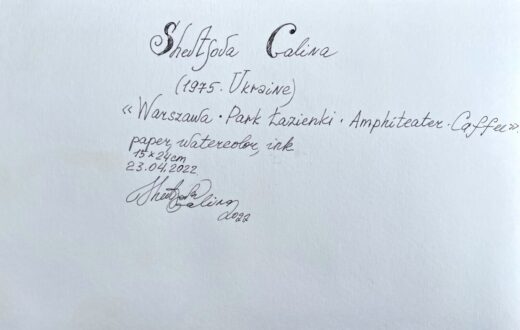 Shevtsova Galina
(1975. Ukraine)
«Warszawa · Park Łazienki · Amphiteater · Caffee»
paper, watercolor, ink
15x24cm
23.04.2022
Shevtsova
Galina
2022